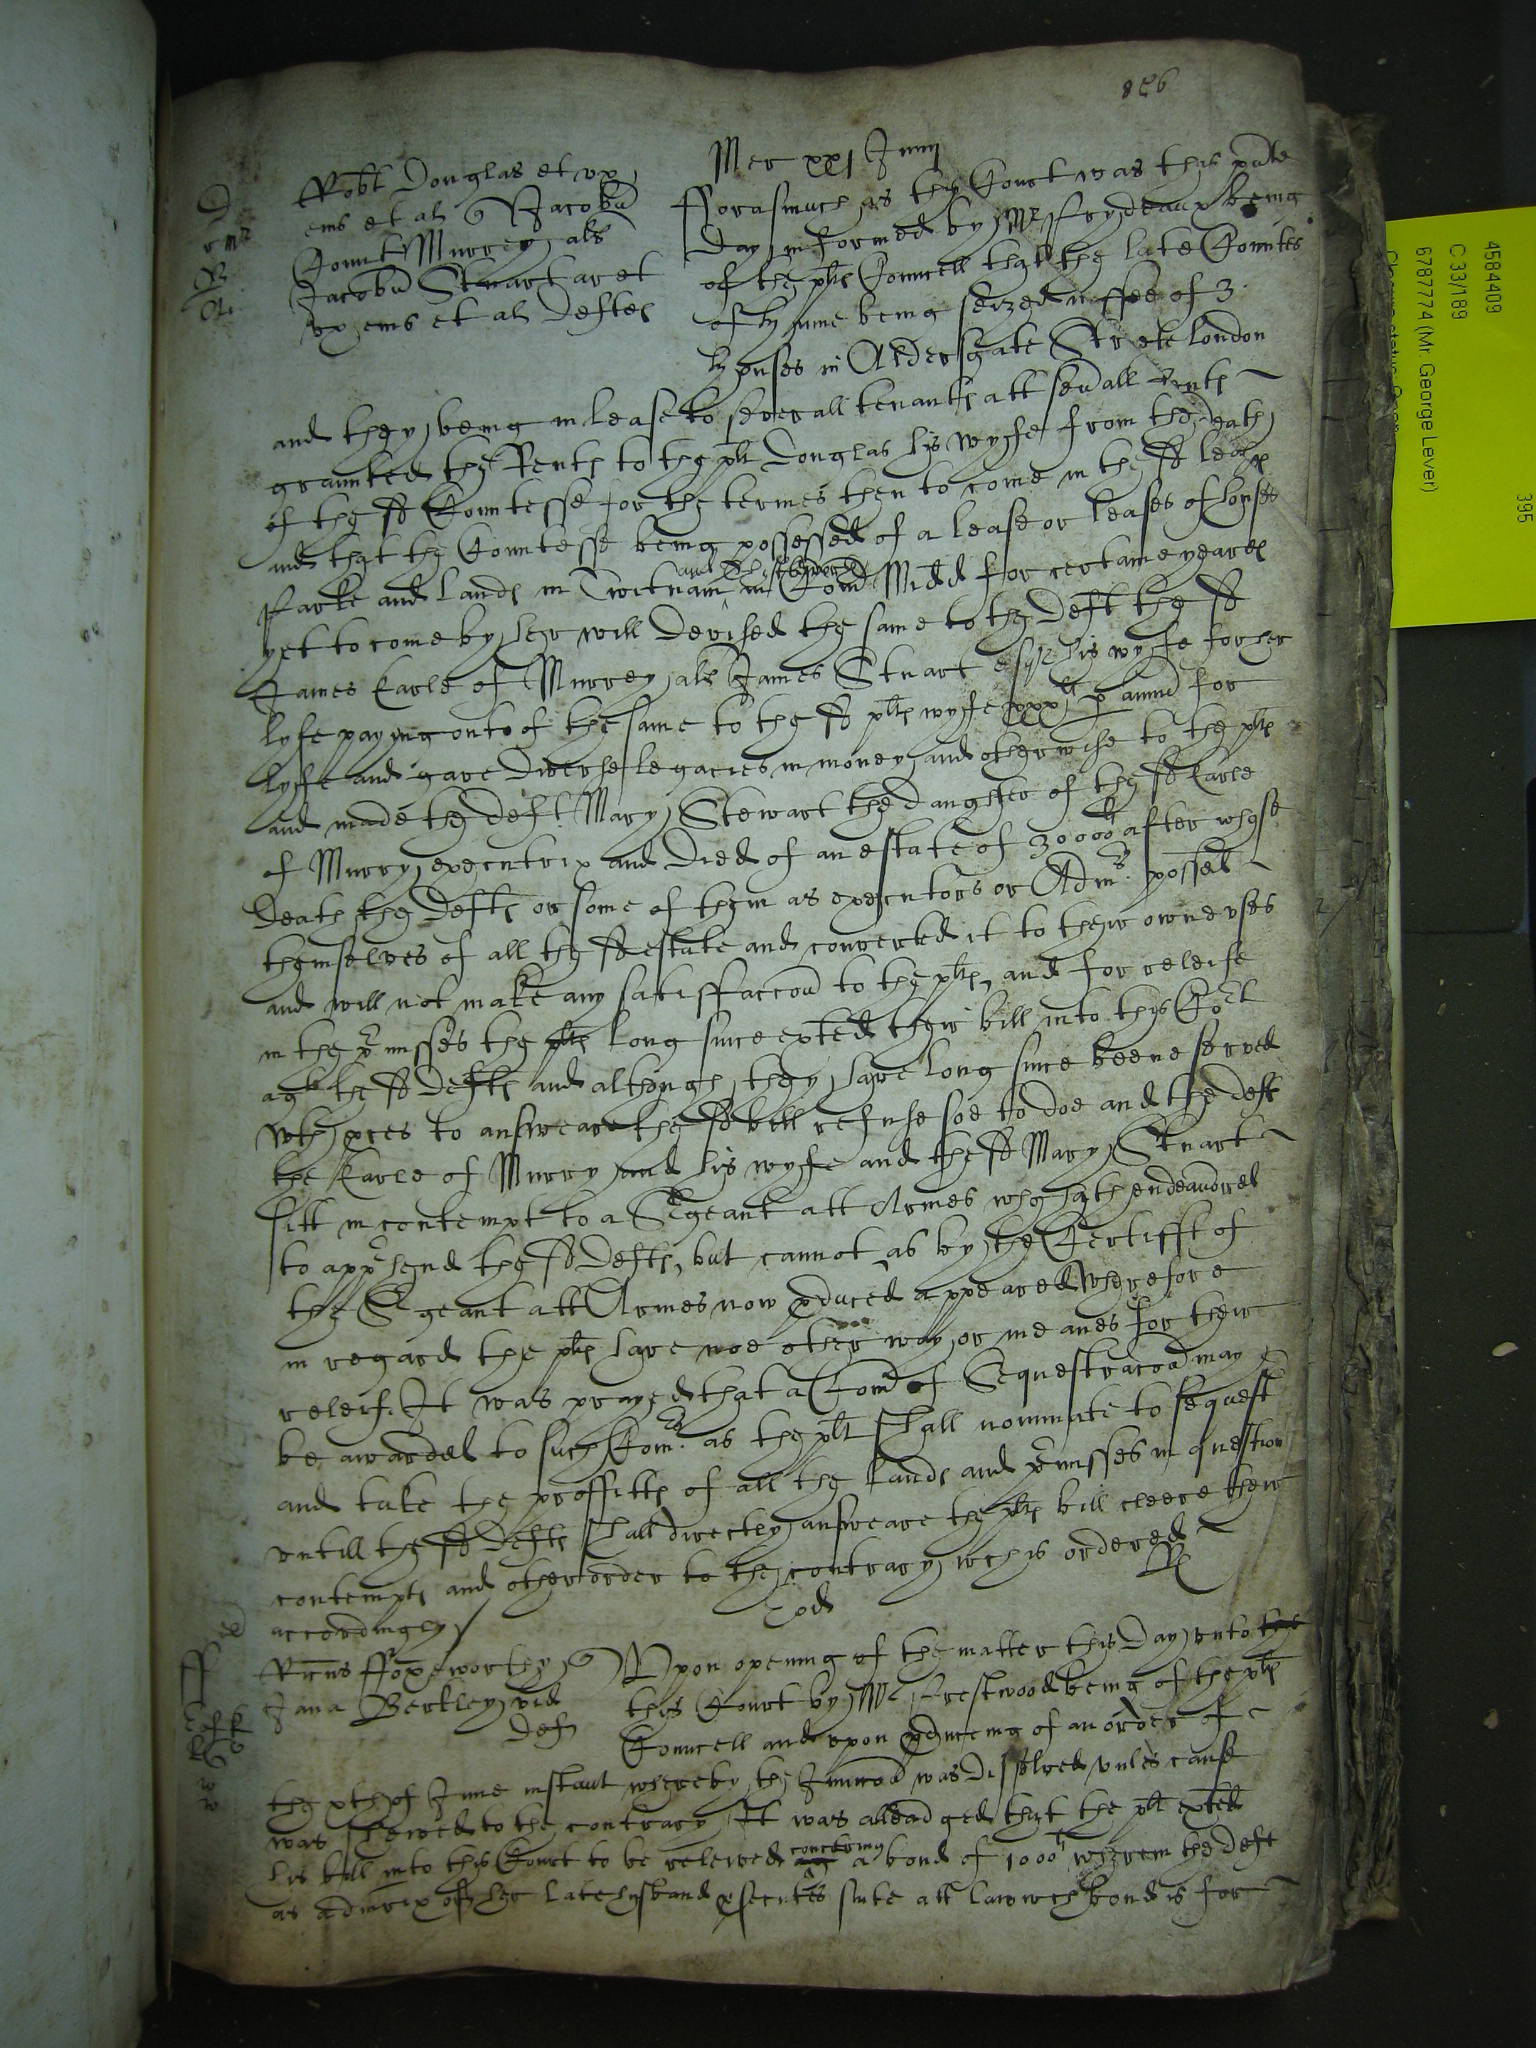 856
Mer xxj Junij
Robt Douglas et ux
eius et al q Jacobu
Comit Murrey als
Jacobu Stuart ar et
ux eius et al Deftes
Forasmuch as this Court was this pnte
day informed by Mr Prydeaux being
of the plts Councell that the late Countes
of hume being seized in ffee of 3
houses in Aldersgate Streete London
and they being in lease to severall tenants att seuall rents
graunted the Rents to the plt Douglas his wyfe from the death
of the sd Countesse for the termes then to come in the sd leases
and that the Countesse being possessed of a lease or leases of houses
Parke and lands in Twitnam in Com Midd for certaine yeares
yet to come by her will devised the same to the Deft the sd
James Earle of Murrey als James Stuart esqr his wyfe for her
lyfe paying out of the same to the sd plts wyfe xxx li p annu for
lyfe and gave diverse legacies in money and otherwise to the plts
and made the Deft Mary Stewart the daughter of the sd Earle
of Murry executrix and died of an estate of 30000li after whose
death the Defts or some of them as executors or Admrs possest
themselves of all the sd estate and converted it to their owne uses
and will not make any satisffaccon to the plts, and for releife
in the pmisses the plts long since exhted their bill into this Cort
agt the sd Defts and although they have long since beene served
wth pces to answeare the sd bill refuse soe to doe and the deft
the Earle of Murry and his wyfe and the sd Mary Stuart
sitt in contempt to a Sergeant att Armes who hath endeavored
to apprhend the sd Defts, but cannot as by the Certifft of
the Sergeant att Armes now pduced appeared Wherefore
in regard the plts have noe other way or meanes for their
releife It was prayed that a Com of Sequestracon may
be awarded to such Comrs as the plt shall nominate to sequest
and take the proffitts of all the lands and pmisses in question
untill the sd Defts shall directly answeare the plts bill cleere their
contempts and other order to the contrary wch is ordered
accordingly
Ricus Foxeworthy q
Jana Berkley vid
Def
Upon opening of the matter this day unto the
this Court by Mr Prestwood being of the plts
Councell and upon pducing of an order of
the xth of June instant whereby the Iniuncon was dissolved unles cause
was shewed to the contrary It was alleadged that the plt exhted
his bill into this Court to be releived concerning a bond of 1000li wherein the Deft
as admrix of her late husband psecutes suite att law wch bond is for
4584409
C 33/189
6787774 (Mr. George Lever)
395